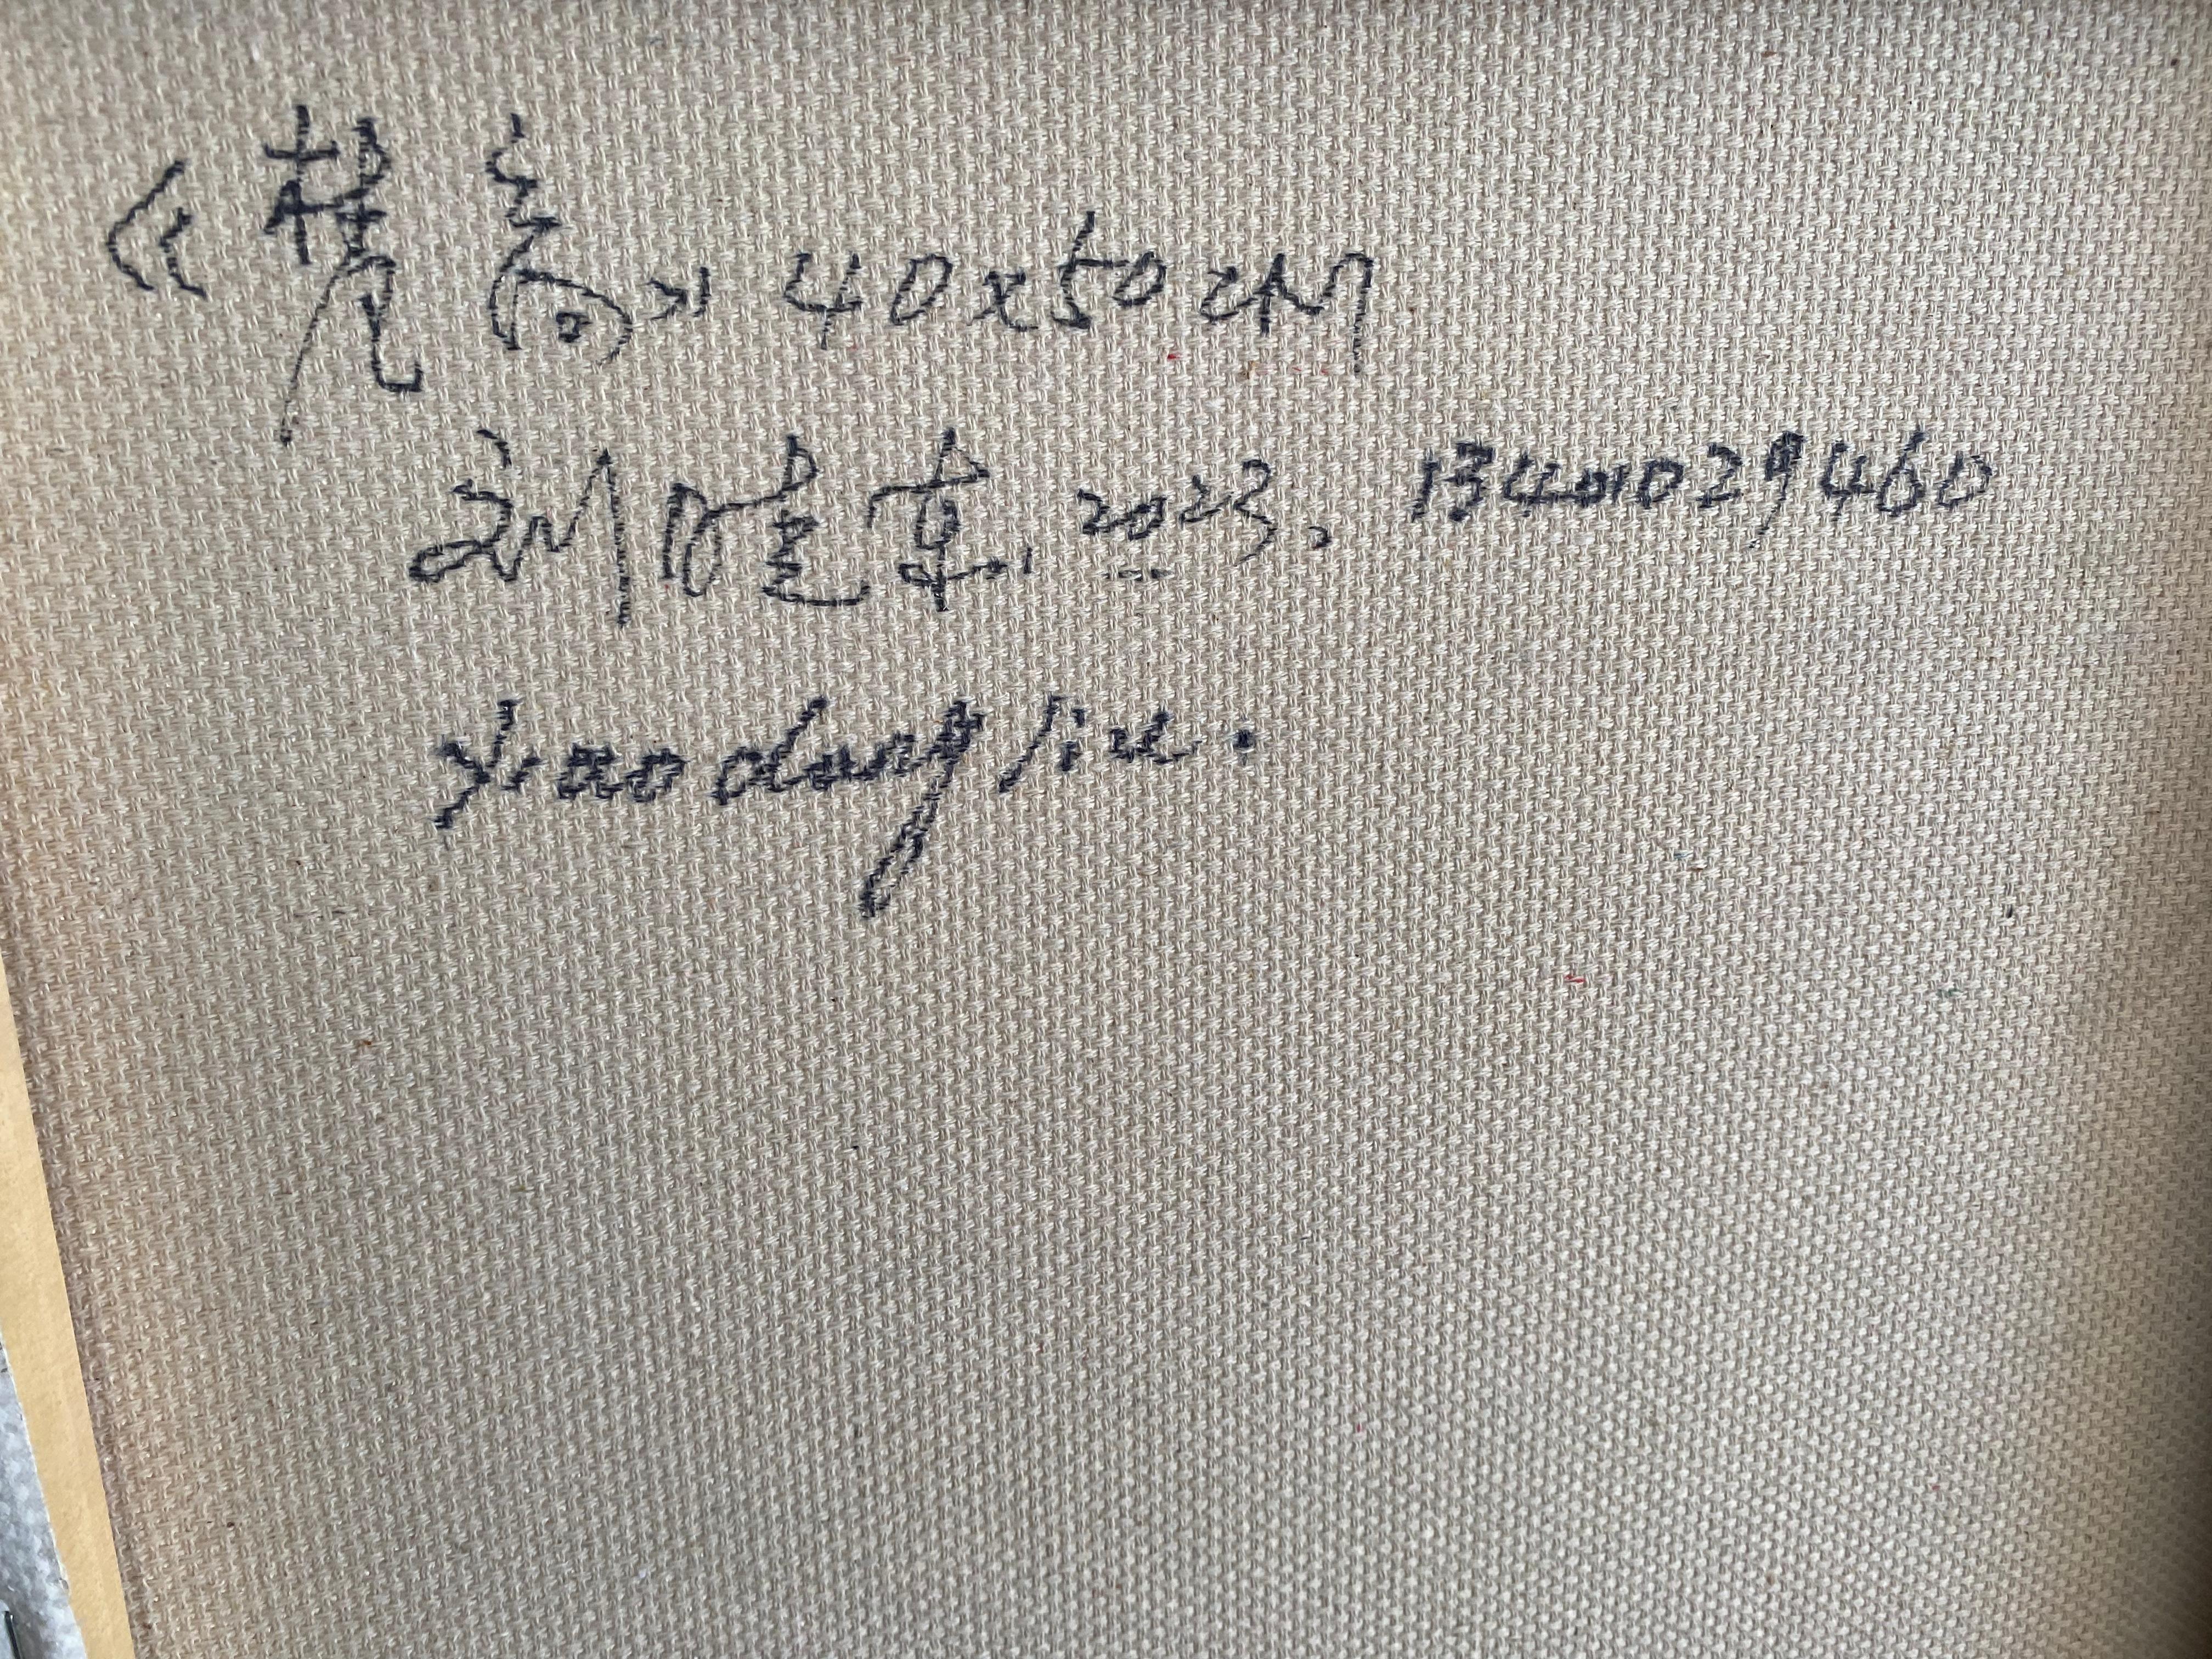 《梵高》 40x50cM
刘晓東. 2023. 13401029460
xiaodong liu.